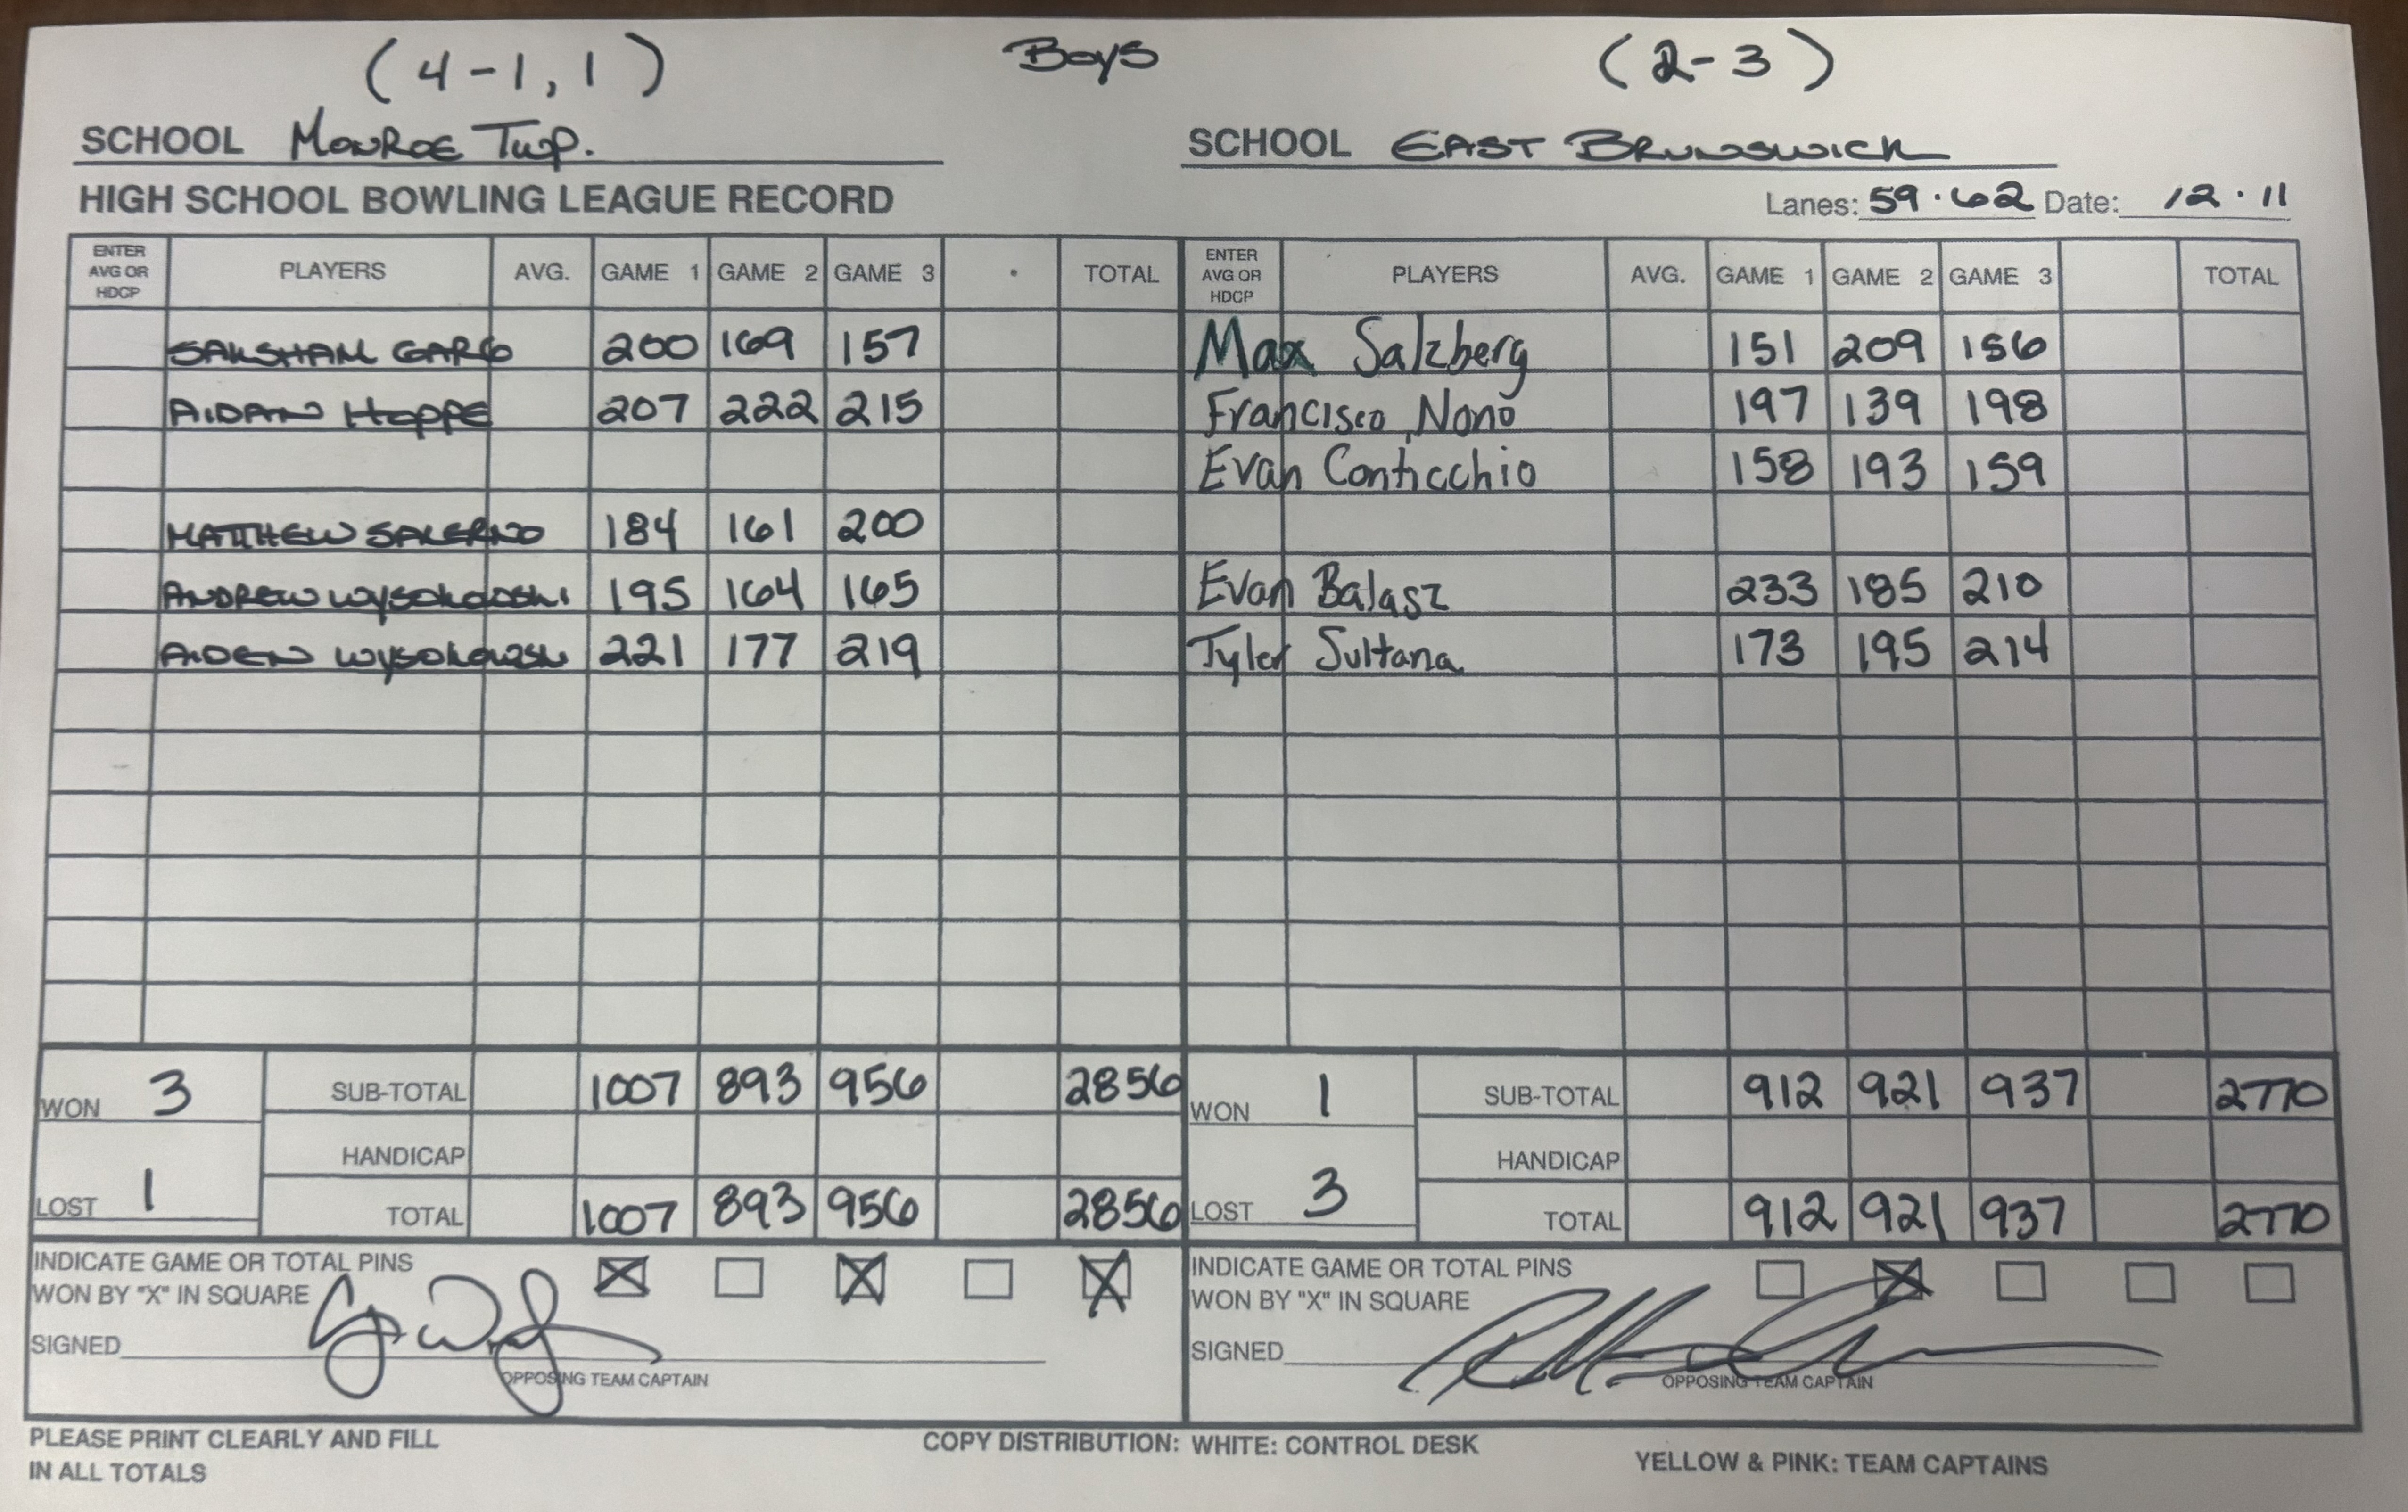 (4-1, 1) Boys (2-3)
SCHOOL Monroe Twp. SCHOOL EAST BRUNSWICK
HIGH SCHOOL BOWLING LEAGUE RECORD Lanes: 59·62 Date: 12·11
ENTER AVG OR HDCP PLAYERS AVG. GAME 1 GAME 2 GAME 3 TOTAL ENTER AVG OR HDCP PLAYERS AVG. GAME 1 GAME 2 GAME 3 TOTAL
SAKSHAM GARG 200 169 157 Max Salzberg 151 209 156
AIDAN HOPPE 207 222 215 Francisco Nono 197 139 198
Evan Conticchio 158 193 159
MATTHEW SALERNO 184 161 200
ANDREW 195 164 165 Evan Balasz 233 185 210
AIDEN 221 177 219 Tyler Sultana 173 195 214
WON 3 SUB-TOTAL 1007 893 956 2856 WON 1 SUB-TOTAL 912 921 937 2770
HANDICAP HANDICAP
LOST 1 TOTAL 1007 893 956 2856 LOST 3 TOTAL 912 921 937 2770
INDICATE GAME OR TOTAL PINS INDICATE GAME OR TOTAL PINS
WON BY "X" IN SQUARE X X X WON BY "X" IN SQUARE X
SIGNED SIGNED
OPPOSING TEAM CAPTAIN OPPOSING TEAM CAPTAIN
PLEASE PRINT CLEARLY AND FILL COPY DISTRIBUTION: WHITE: CONTROL DESK YELLOW & PINK: TEAM CAPTAINS
IN ALL TOTALS